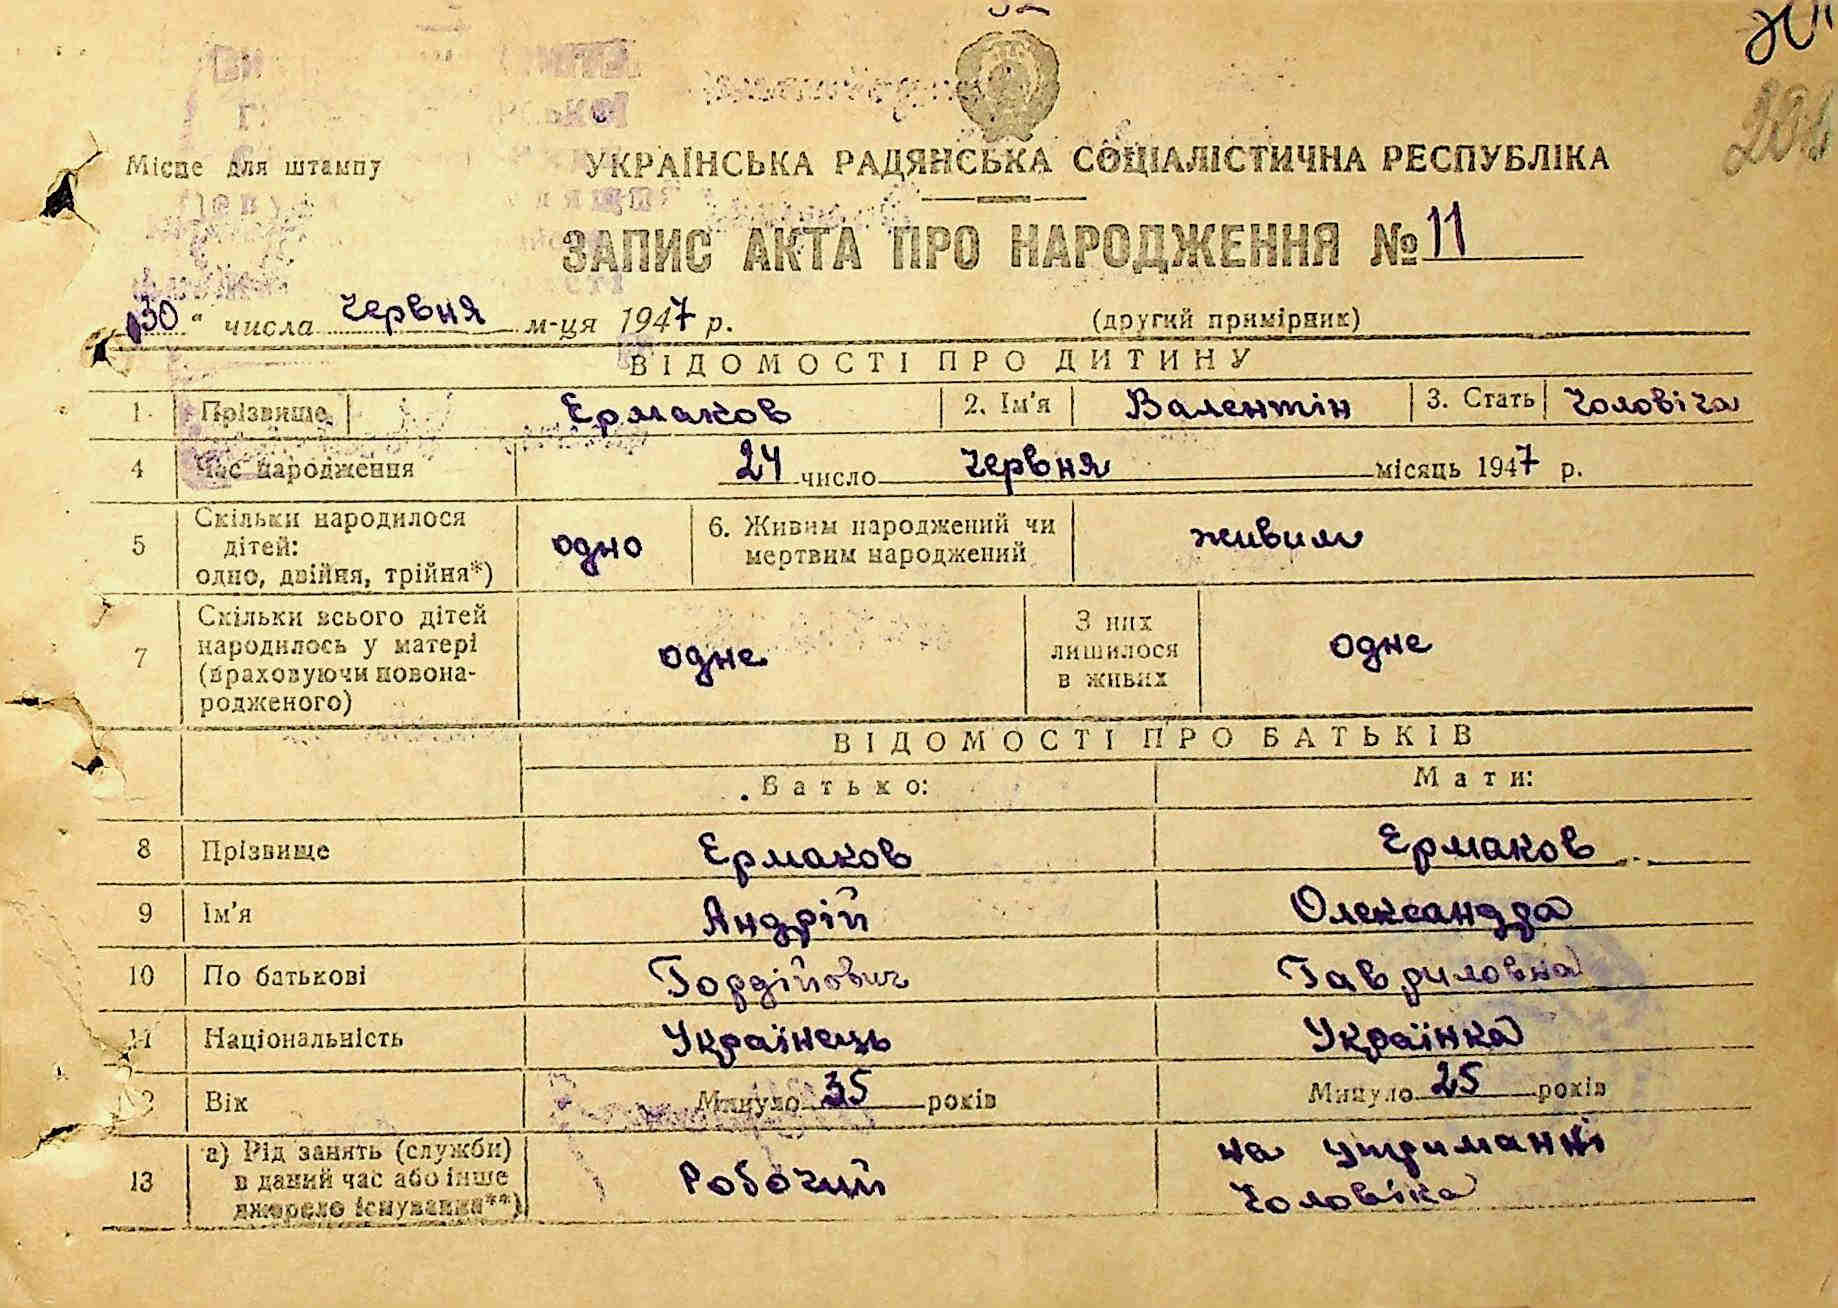 Місце для штампу
УКРАЇНСЬКА РАДЯНСЬКА СОЦІАЛІСТИЧНА РЕСПУБЛІКА
ЗАПИС АКТА ПРО НАРОДЖЕННЯ № 11
30 " числа червня м-ця 1947 р. (другий примірник)
ВІДОМОСТІ ПРО ДИТИНУ
1 Прізвище Ермаков 2. Ім'я Валентін 3. Стать Чоловіча
4 Час народження 24 число Червня місяць 1947 р.
5 Скільки народилося дітей: одно, двійня, трійня*) одно 6. Живим народжений чи мертвим народжений живим
7 Скільки всього дітей народилось у матері (враховуючи новонародженого) одне З них лишилося в живих одне
ВІДОМОСТІ ПРО БАТЬКІВ
Батько: Мати:
8 Прізвище Ермаков Ермаков
9 Ім'я Андрій Олександра
10 По батькові Гордійович Гавриловна
11 Національність Українець Українка
12 Вік Минуло 35 років Минуло 25 років
13 а) Рід занять (служби) в даний час або інше джерело існування**) Робочий на утриманні Чоловіка